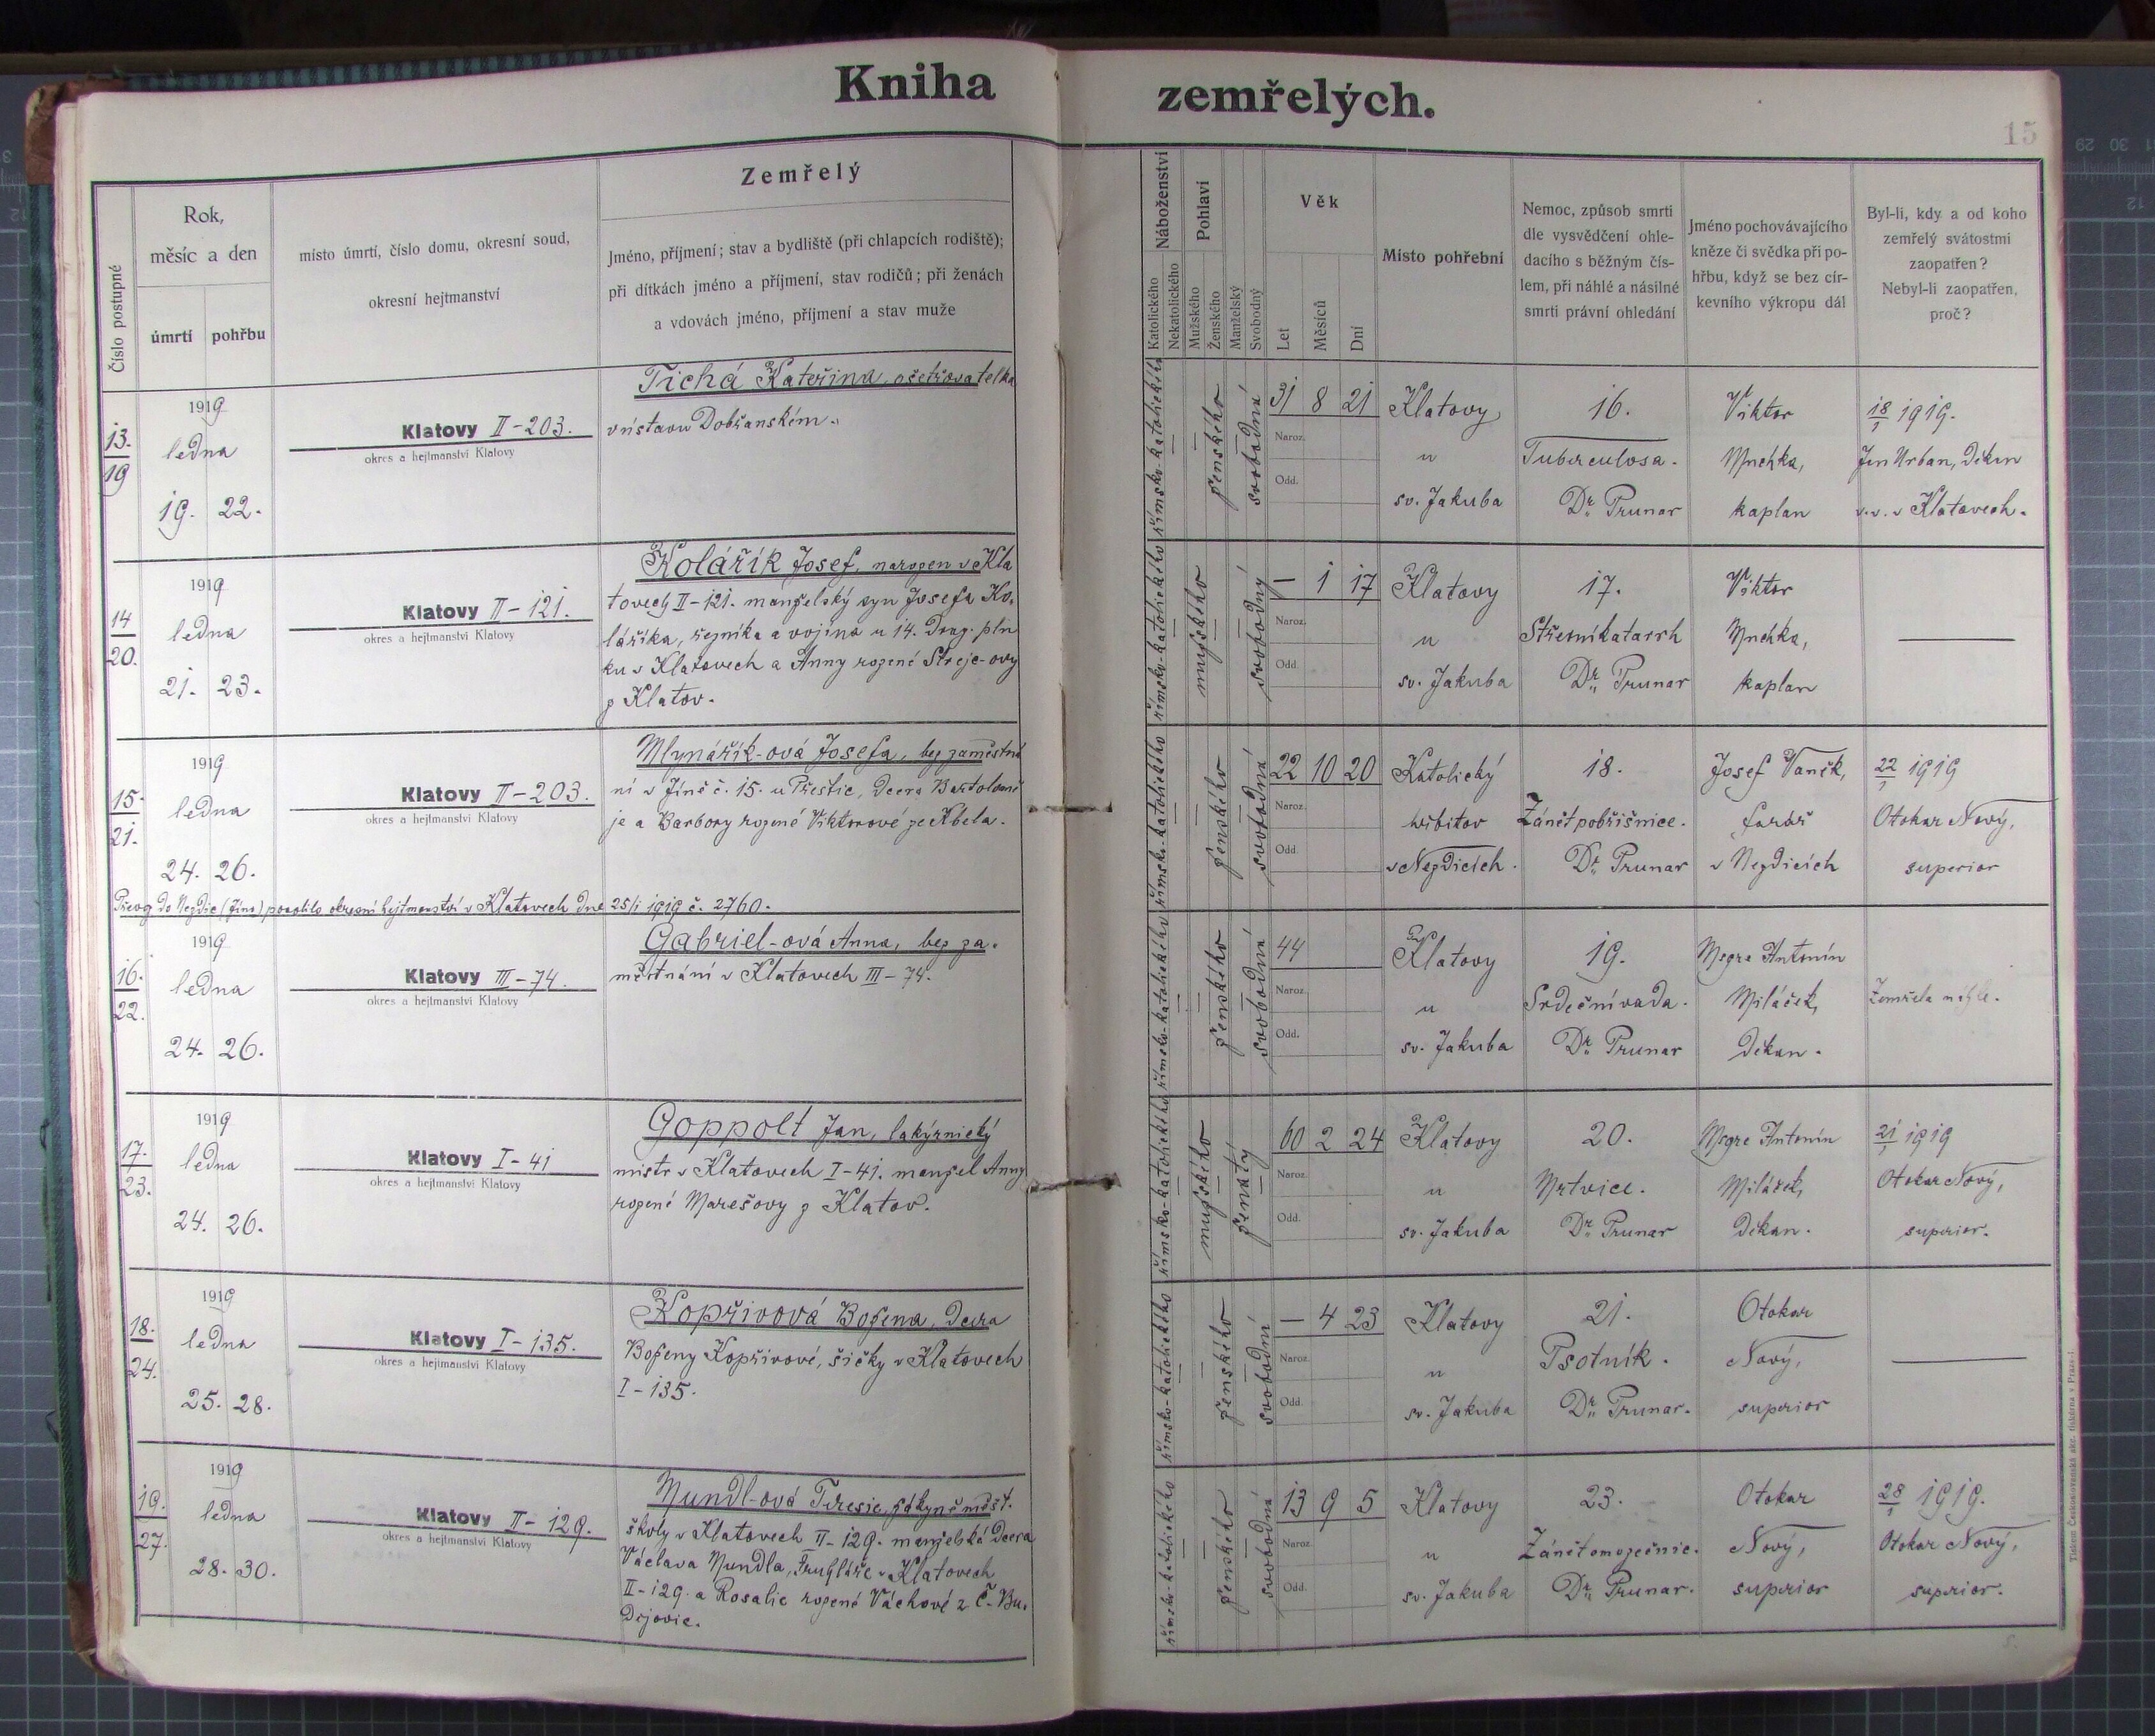 Kniha zemřelých.
15
Číslo postupné
Rok,
měsíc a den
úmrtí pohřbu
místo úmrtí, číslo domu, okresní soud,
okresní hejtmanství
Zemřelý
Jméno, příjmení; stav a bydliště (při chlapcích rodiště);
při dítkách jméno a příjmení, stav rodičů; při ženách
a vdovách jméno, příjmení a stav muže
Náboženství
Katolického
Nekatolického
Pohlaví
Mužského
Ženského
Manželský
Svobodný
Věk
Let
Měsíců
Dní
Místo pohřební
Nemoc, způsob smrti
dle vysvědčení ohle-
dacího s běžným čís-
lem, při náhlé a násilné
smrti právní ohledání
Jméno pochovávajícího
kněze či svědka při po-
hřbu, když se bez cír-
kevního výkropu dál
Byl-li, kdy a od koho
zemřelý svátostmi
zaopatřen?
Nebyl-li zaopatřen,
proč?
13.
19
1919
ledna
19. 22.
Klatovy II-203.
okres a hejtmanství Klatovy
Tichá Kateřina, ošetřovatelka
v ústavu Dobřanském.
římsko-katolického
ženského
svobodná
31 8 21
Naroz.
Odd.
Klatovy
u
sv. Jakuba
16.
Tuberculosa.
Dr. Prunar
Viktor
Mnchka,
kaplan
18/1 1919.
Jan Urban, děkan
v.v. v Klatovech.
14
20.
1919
ledna
21. 23.
Klatovy II-121.
okres a hejtmanství Klatovy
Kolářík Josef, narozen v Kla
tovech II-121. manželský syn Josefa Ko-
láříka, řezníka a vojína u 14. Drag. plu
ku v Klatovech a Anny rozené Streje-ovy
z Klatov.
římsko-katolického
mužského
svobodný
— 1 17
Naroz.
Odd.
Klatovy
u
sv. Jakuba
17.
Střevní katarrh
Dr. Prunar
Viktor
Mnchka,
kaplan
—
15.
21.
1919
ledna
24. 26.
Klatovy II-203.
okres a hejtmanství Klatovy
Mlynářík-ová Josefa, bez zaměstná
ní v Jíně č. 15. u Přeštic, dcera Bartolomě
je a Barbory rozené Viktorové ze Kbela.
římsko-katolického
ženského
svobodná
22 10 20
Naroz.
Odd.
Katolický
hřbitov
v Nezdicích.
18.
Zánět pobřišnice.
Dr. Prunar
Josef Vaněk,
farář
v Nezdicích
22/1 1919
Otokar Nový,
superior
Převoz do Nezdic (Jíno) povolilo okresní hejtmanství v Klatovech dne 25/1 1919 č. 2760.
16.
22.
1919
ledna
24. 26.
Klatovy III-74.
okres a hejtmanství Klatovy
Gabriel-ová Anna, bez za-
městnání v Klatovech III-74.
římsko-katolického
ženského
svobodná
44
Naroz.
Odd.
Klatovy
u
sv. Jakuba
19.
Srdeční vada.
Dr. Prunar
Msgre Antonín
Miláček,
děkan.
Zemřela náhle.
17.
23.
1919
ledna
24. 26.
Klatovy I-41
okres a hejtmanství Klatovy
Goppolt Jan, lakýrnický
mistr v Klatovech I-41. manžel Anny
rozené Marešovy z Klatov.
římsko-katolického
mužského
ženatý
60 2 24
Naroz.
Odd.
Klatovy
u
sv. Jakuba
20.
Mrtvice.
Dr. Prunar
Msgre Antonín
Miláček,
děkan.
21/1 1919
Otokar Nový,
superior.
18.
24.
1919
ledna
25. 28.
Klatovy I-135.
okres a hejtmanství Klatovy
Kopřivová Božena, dcera
Boženy Kopřivové, šičky v Klatovech
I-135.
římsko-katolického
ženského
svobodní
— 4 23
Naroz.
Odd.
Klatovy
u
sv. Jakuba
21.
Psotník.
Dr. Prunar.
Otokar
Nový,
superior
—
19.
27.
1919
ledna
28. 30.
Klatovy II-129.
okres a hejtmanství Klatovy
Mundl-ová Teresie, žákyně měšt.
školy v Klatovech II-129. manželská dcera
Václava Mundla, truhláře v Klatovech
II-129. a Rosalie rozené Váchové z Č. Bu-
dějovic.
římsko-katolického
ženského
svobodná
13 9 5
Naroz.
Odd.
Klatovy
u
sv. Jakuba
23.
Zánět omozečnic.
Dr. Prunar.
Otokar
Nový,
superior
28/1 1919.
Otokar Nový,
superior.
Tiskem Českoslovanská akc. tiskárna v Praze-I.